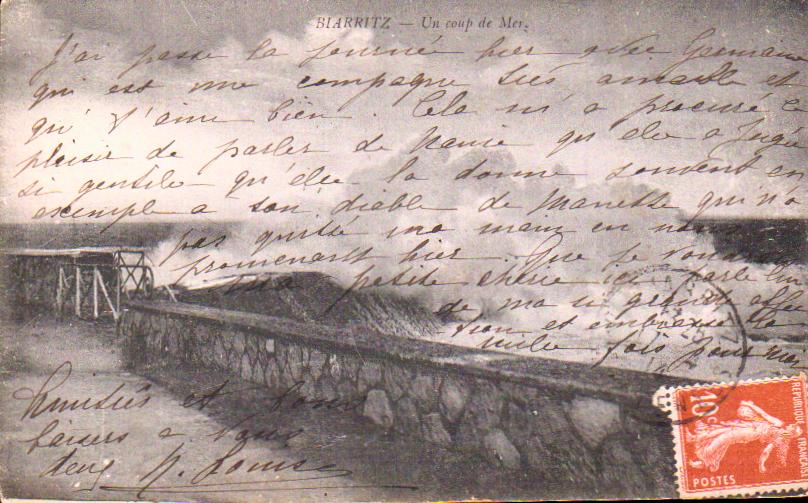 BIARRITZ — Un coup de Mer.
J'ai passé la journée hier avec Germaine
qui est une compagne très aimable et
qu' j'aime bien. Cela m'a procuré le
plaisir de parler de Nanie qu'elle a jugée
si gentille qu'elle la donne souvent en
exemple a son diable de Manette qui n'a
pas quitté ma main en nous
promenant hier. Que je voudrais
ma petite chérie
de ma si grande affec
tion et embrasse la
mille fois pour moi
Amitiés et bons
baisers a vous
deux N. Louise
RÉPUBLIQUE FRANÇAISE
10c
POSTES